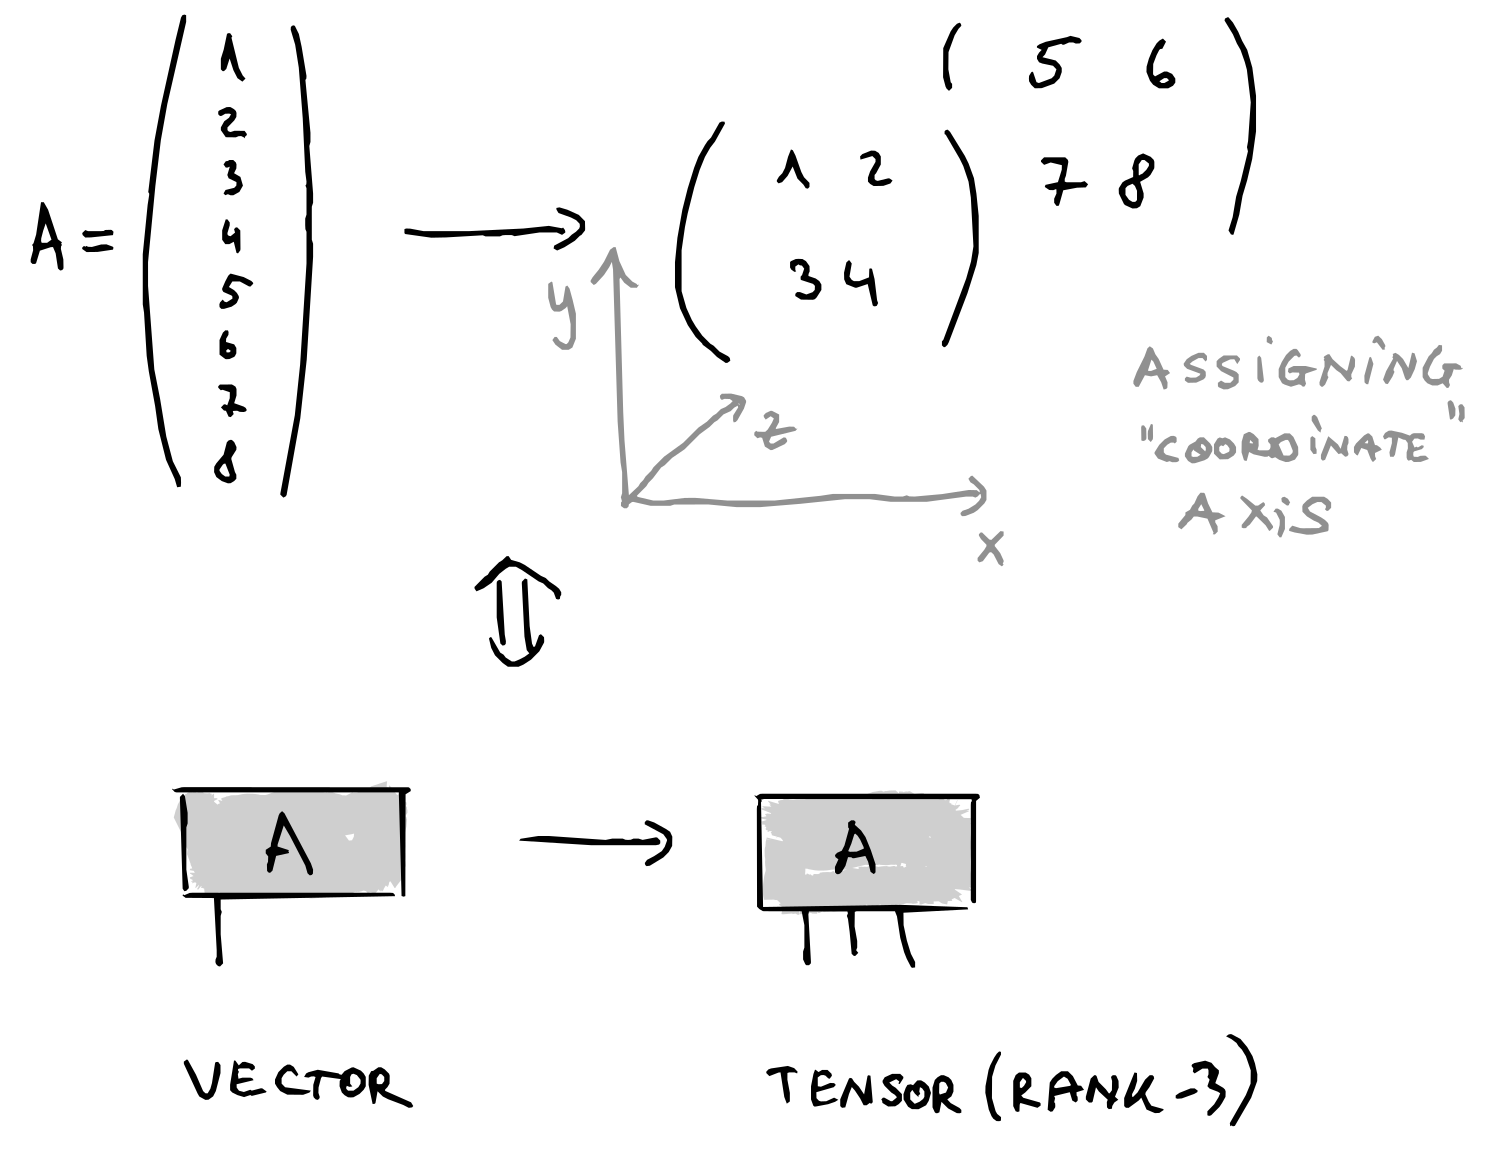 A = ( 1
2
3
4
5
6
7
8 )
( 5 6
7 8 )
( 1 2
3 4 )
y
z
x
ASSIGNING
"COORDINATE"
AXIS
A
A
VECTOR
TENSOR (RANK-3)